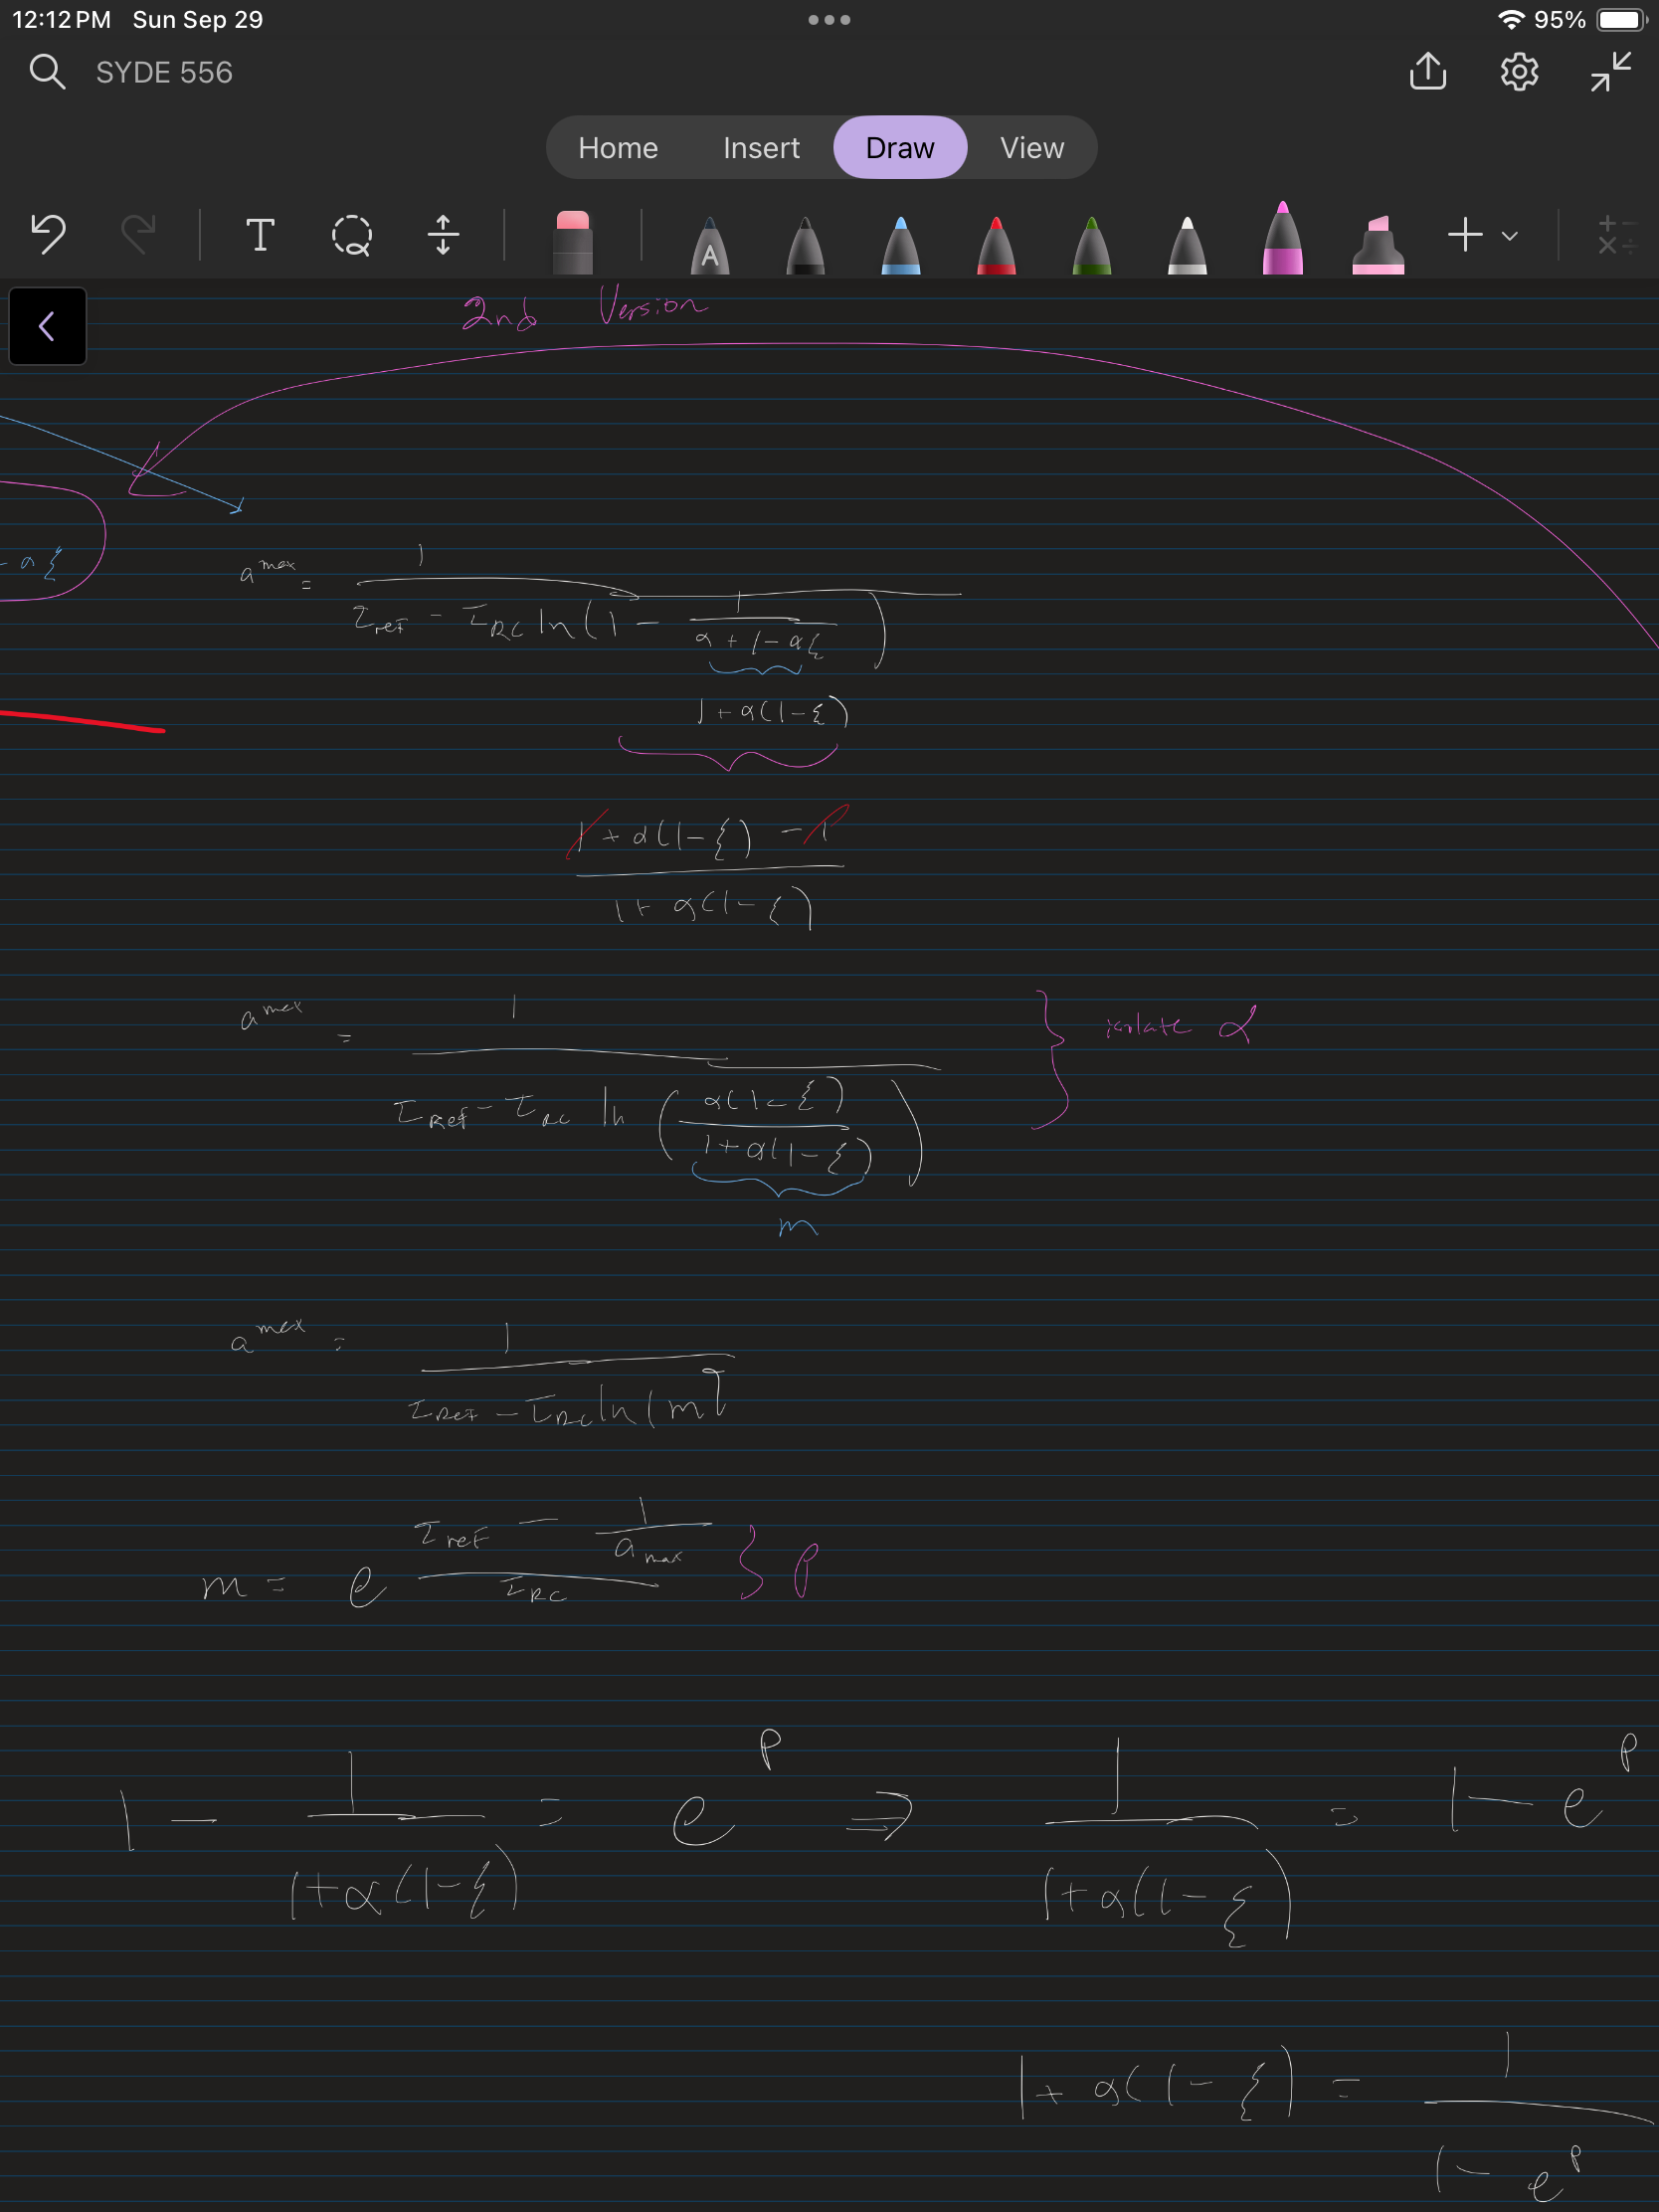 12:12 PM Sun Sep 29 95%
SYDE 556
Home Insert Draw View
T A
2nd Version
- α ξ
a^max = 1 / (τ_ref - τ_RC ln(1 - 1 / (α + 1 - αξ)))
1 + α(1-ξ)
(1 + α(1-ξ) - 1) / (1 + α(1-ξ))
a^max = 1 / (τ_Ref - τ_RC ln(α(1-ξ) / (1 + α(1-ξ)))) } isolate α
m
a^max = 1 / (τ_Ref - τ_RC ln(m))
m = e^((τ_ref - 1/a_max) / τ_RC) } P
1 - 1 / (1+α(1-ξ)) = e^P ⇒ 1 / (1+α(1-ξ)) = 1 - e^P
1 + α(1-ξ) = 1 / (1 - e^P)